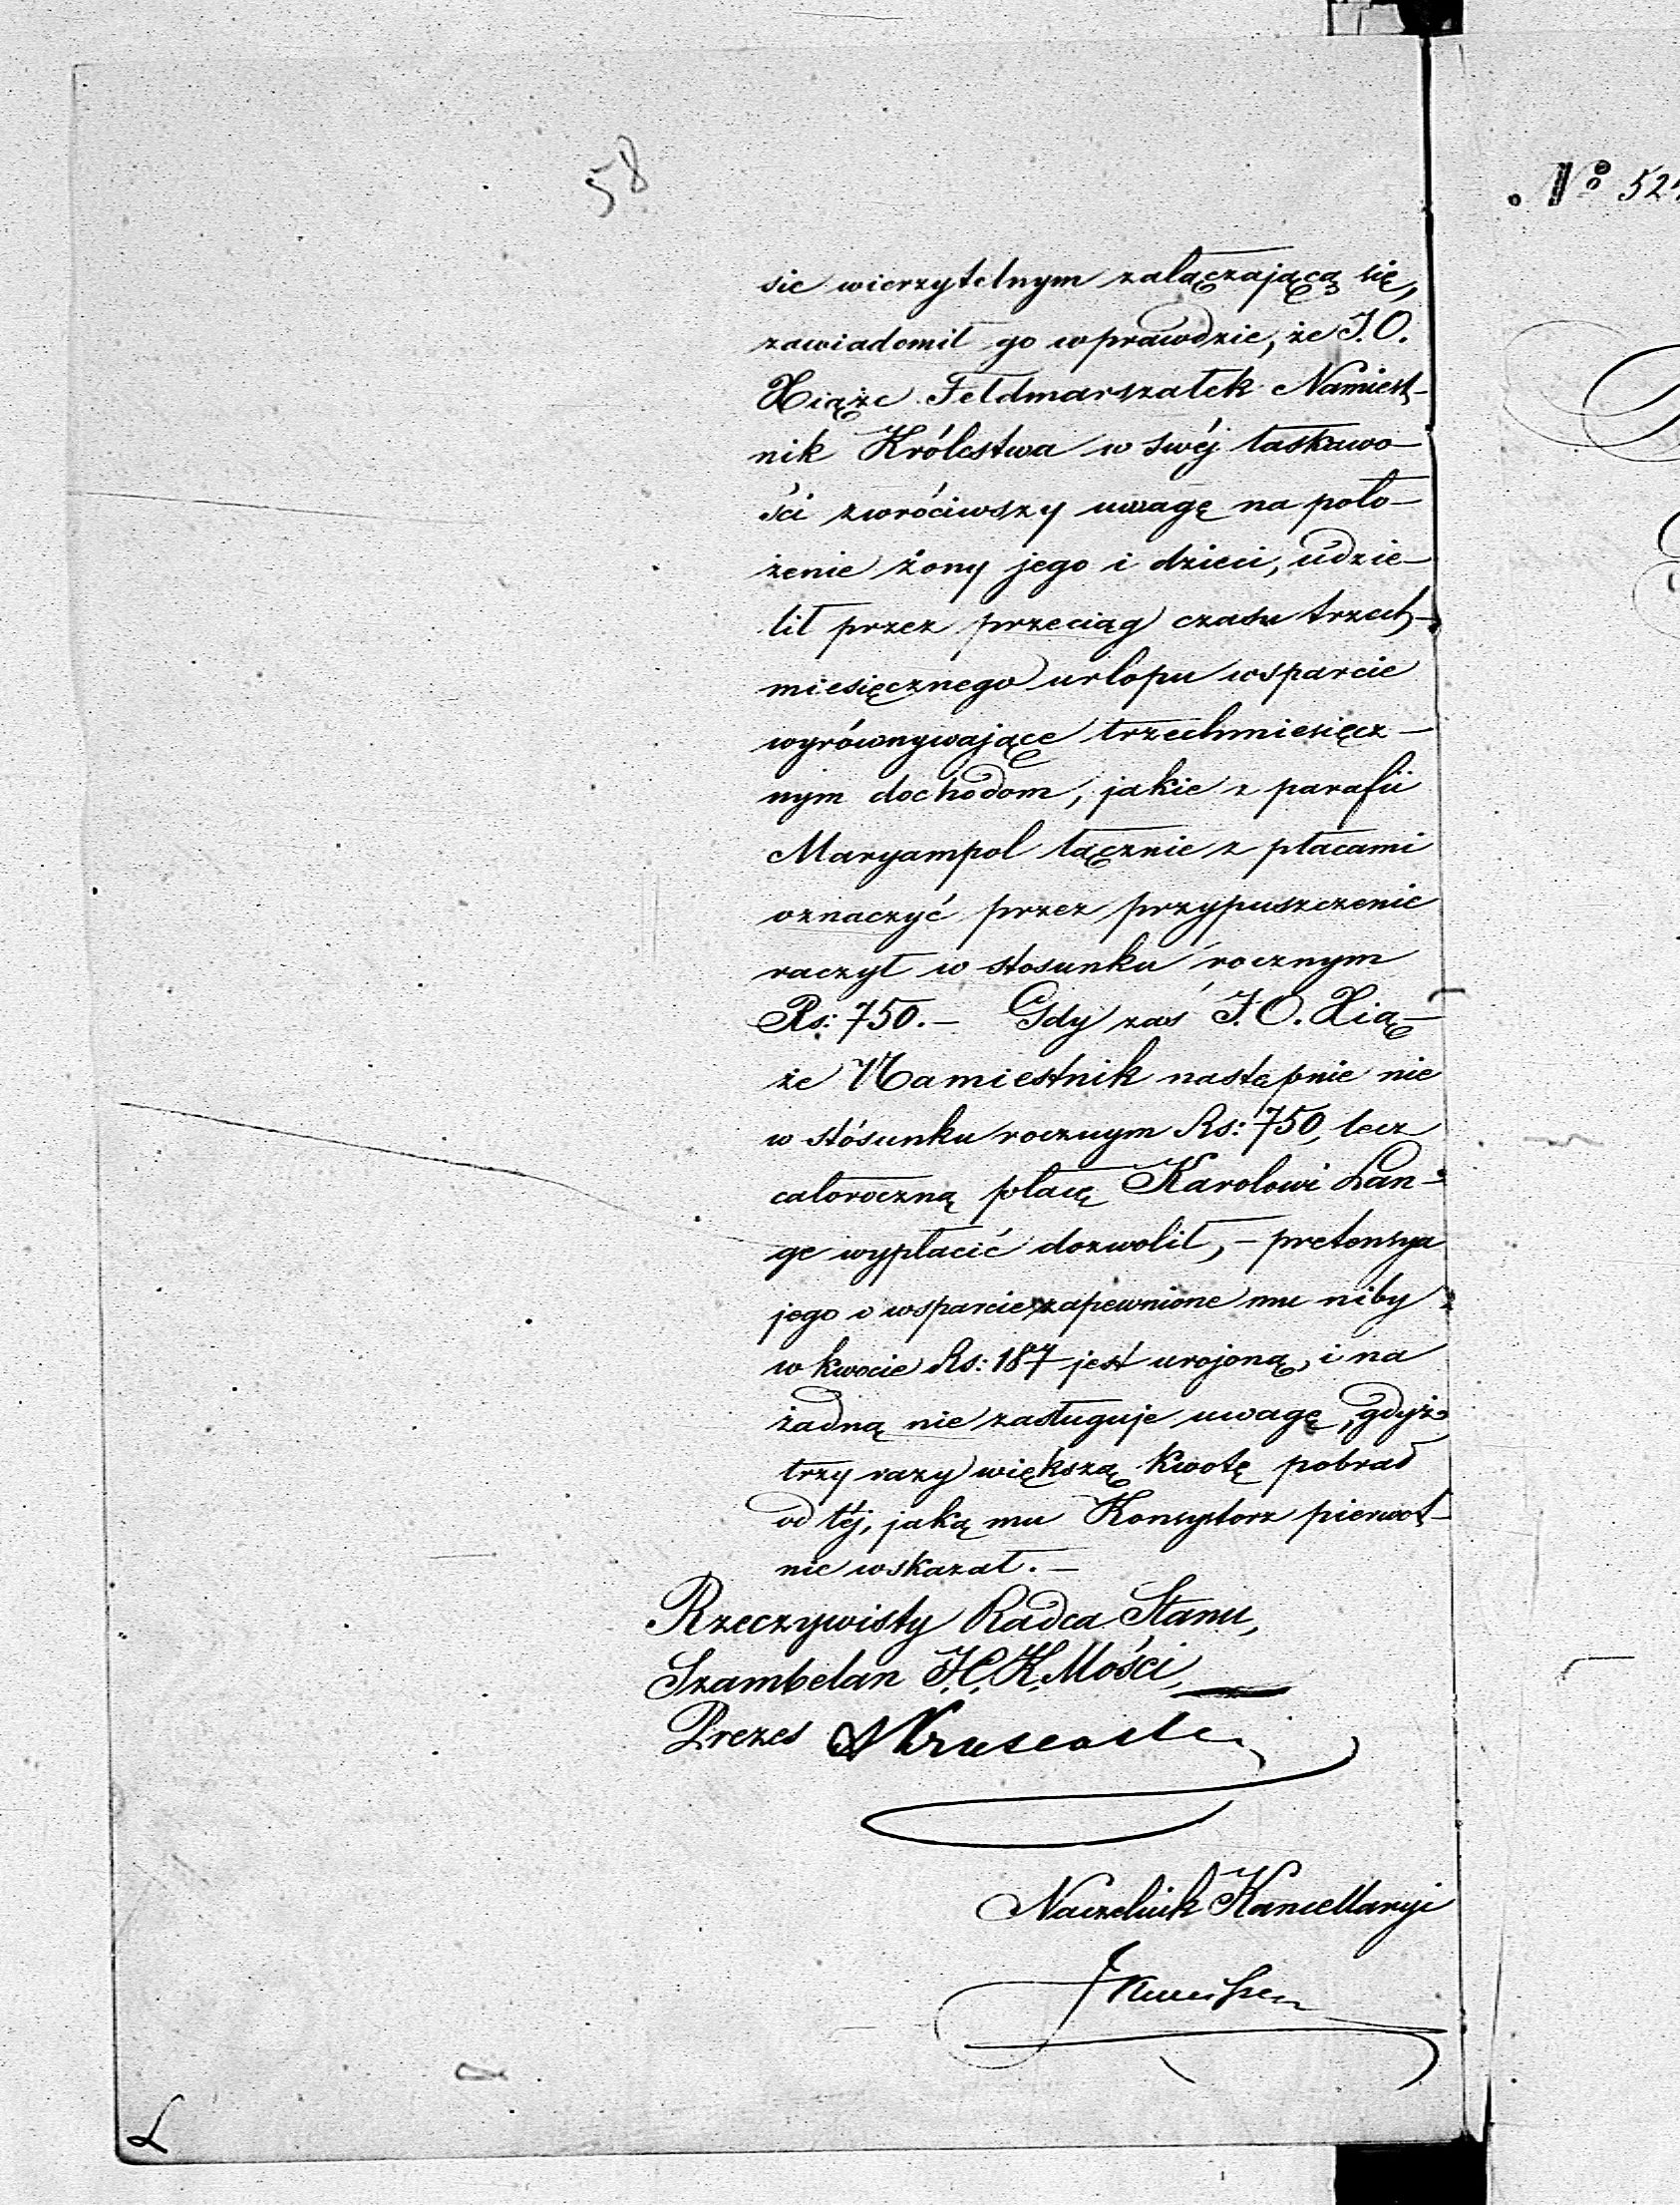 58
№ 52
sie wierzytelnym załączającą się,
zawiadomił go wprawdzie, że J.O.
Xiąże Feldmarszałek Namiest-
nik Królestwa w swéj łaskawo-
ści zwróciwszy uwagę na poło-
żenie żony jego i dzieci, udzie-
lił przez przeciąg czasu trzech-
miesięcznego urlopu wsparcie
wyrównywające trzechmiesięcz-
nym dochodom, jakie z parafii
Maryampol łącznie z płacami
oznaczyć przez przypuszczenie
raczył w stosunku rocznym
Rs: 750.- Gdy zaś J.O. Xią-
że Namiestnik następnie nie
w stósunku rocznym Rs: 750, lecz
całoroczną płacę Karolowi Lan-
ge wypłacić dozwolił, - pretensya
jego o wsparcie zapewnione mu niby
w kwocie Rs: 187 jest urojoną, i na
żadną nie zasługuje uwagę, gdyż
trzy razy większą kwotę pobrał
od téj, jaką mu Konsystorz pierwot-
nie wskazał.-
Rzeczywisty Radca Stanu,
Szambelan J.C.K. Mości,
Prezes
Naczelnik Kancellaryi
L